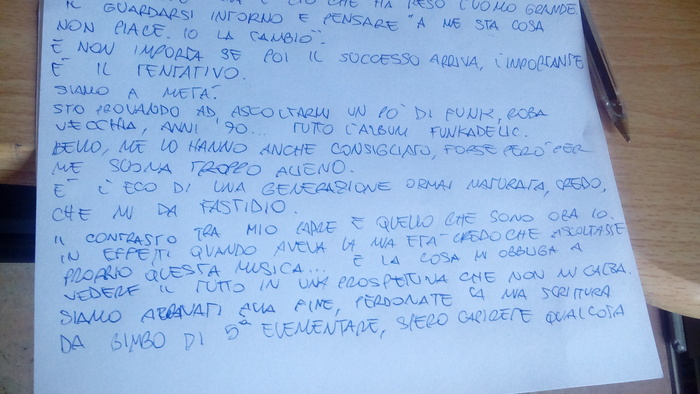 IL GUARDARSI INTORNO E PENSARE "A ME STA COSA
NON PIACE. IO LA CAMBIO".
E NON IMPORTA SE POI IL SUCCESSO ARRIVA, L'IMPORTANTE
E' IL TENTATIVO.
SIAMO A META'.
STO PROVANDO AD ASCOLTARMI UN PO' DI FUNK, ROBA
VECCHIA, ANNI '90... TUTTO L'ALBUM FUNKADELIC.
BELLO, ME LO HANNO ANCHE CONSIGLIATO, FORSE PERO' PER
ME SUONA TROPPO ALIENO.
E' L'ECO DI UNA GENERAZIONE ORMAI MATURATA, CREDO,
CHE MI DA FASTIDIO.
IL CONTRASTO TRA MIO PADRE E QUELLO CHE SONO ORA IO.
IN EFFETTI QUANDO AVEVA LA MIA ETA' CREDO CHE ASCOLTASSE
PROPRIO QUESTA MUSICA... E LA COSA MI OBBLIGA A
VEDERE IL TUTTO IN UNA PROSPETTIVA CHE NON MI GARBA.
SIAMO ARRIVATI ALLA FINE, PERDONATE LA MIA SCRITTURA
DA BIMBO DI 5ª ELEMENTARE, SPERO CAPIRETE QUALCOSA